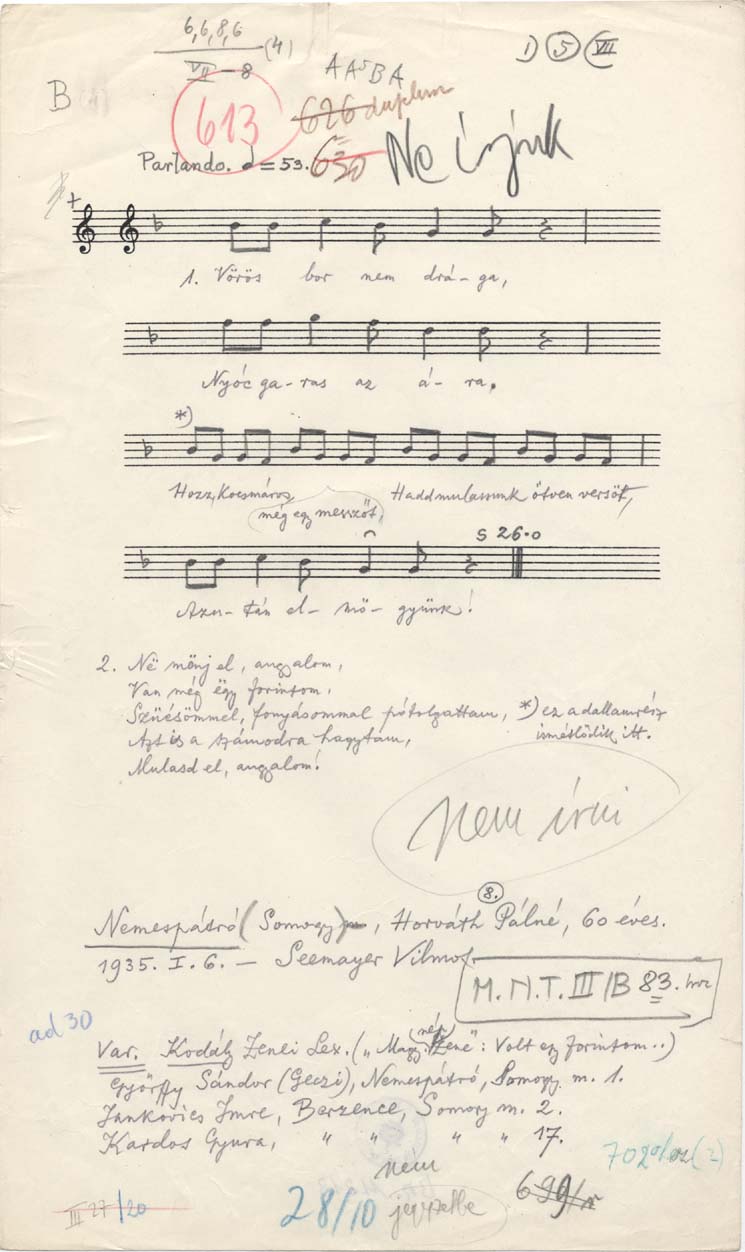 6,6,8,6 (4)
VII – 8
1) 5 VII
B
A A5 B A
613
626 duplum
630
Parlando. = 53.
Ne írjuk
1. Vörös bor nem drá-ga,
Nyóc ga-ras az á-ra.
*)
Hozz, kocsmáros, még egy messzöt, Hadd mulassunk ötven versöt,
S 26.0
Azu-tán el-mö-gyünk!
2. Në mönj el, angyalom,
Van még ëgy forintom,
Szüésömmel, fonyásommal pótolgattam, *) ez a dallamrész
ismétlődik itt.
Azt is a számodra hagytam,
Mulasd el, angyalom!
nem írni
8.
Nemespátró (Somogy), Horváth Pálné, 60 éves.
1935. I. 6. — Seemayer Vilmos.
M.N.T. III/B 83.
ad 30
Var. Kodály Zenei Lex. („Magy. népzene": Volt egy forintom..)
Györffy Sándor (Geczi), Nemespátró, Somogy m. 1.
Jankovics Imre, Berzence, Somogy m. 2.
Kardos Gyura, " " " " 17.
nem
III 27/20
28/10